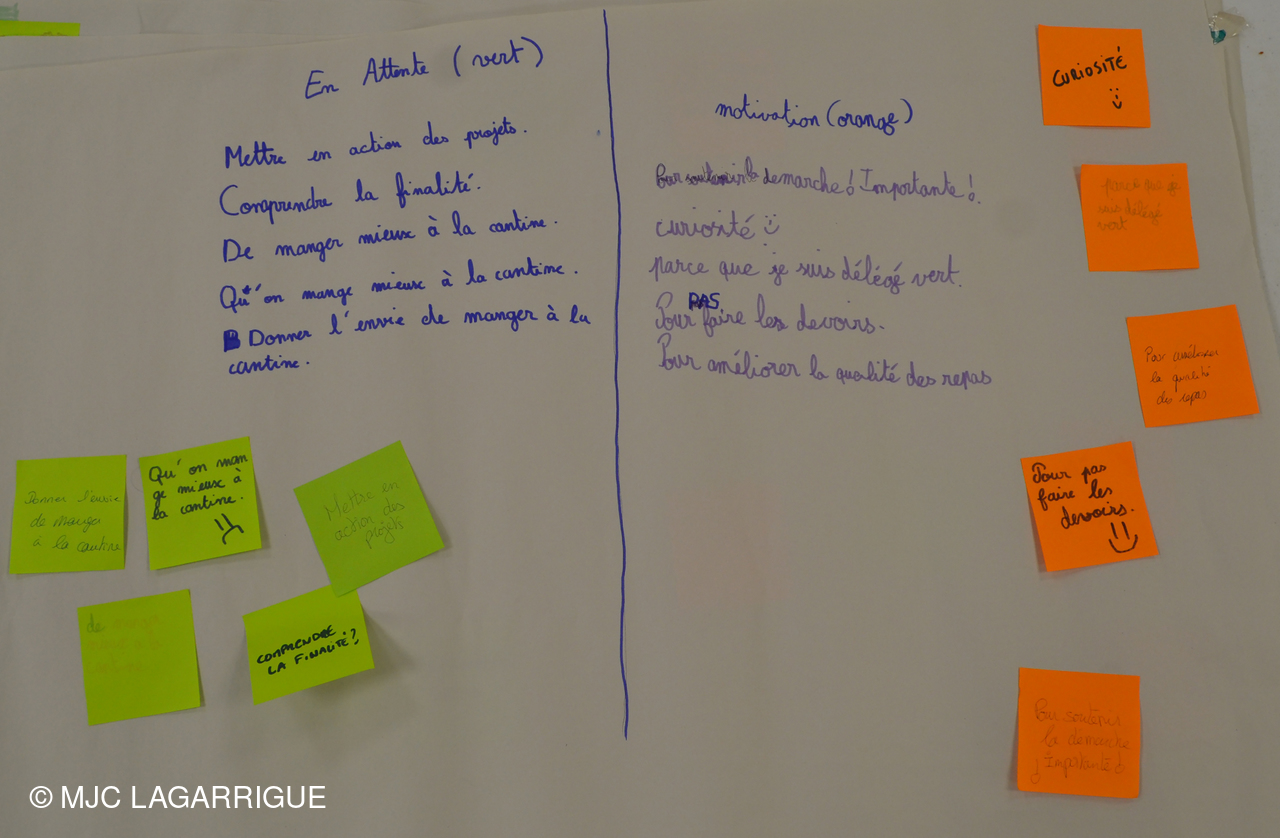 En Attente (vert)
Mettre en action des projets.
Comprendre la finalité.
De manger mieux à la cantine.
Qu'on mange mieux à la cantine.
Donner l'envie de manger à la
cantine.
motivation (orange)
Pour soutenir la demarche ! Importante !
curiosité
parce que je suis délégé vert.
PAS
Pour faire les devoirs.
Pour améliorer la qualité des repas
CURIOSITÉ
parce que je
suis délégé
vert
Pour améliorer
la qualité
des repas
Pour pas
faire les
devoirs.
Pour soutenir
la demarche
¡ Importante !
Donner l'envie
de manger
à la cantine
Qu'on man
ge mieux à
la cantine.
Mettre en
action des
projets
de manger
mieux à la
cantine
COMPRENDRE
LA FINALITÉ?
© MJC LAGARRIGUE